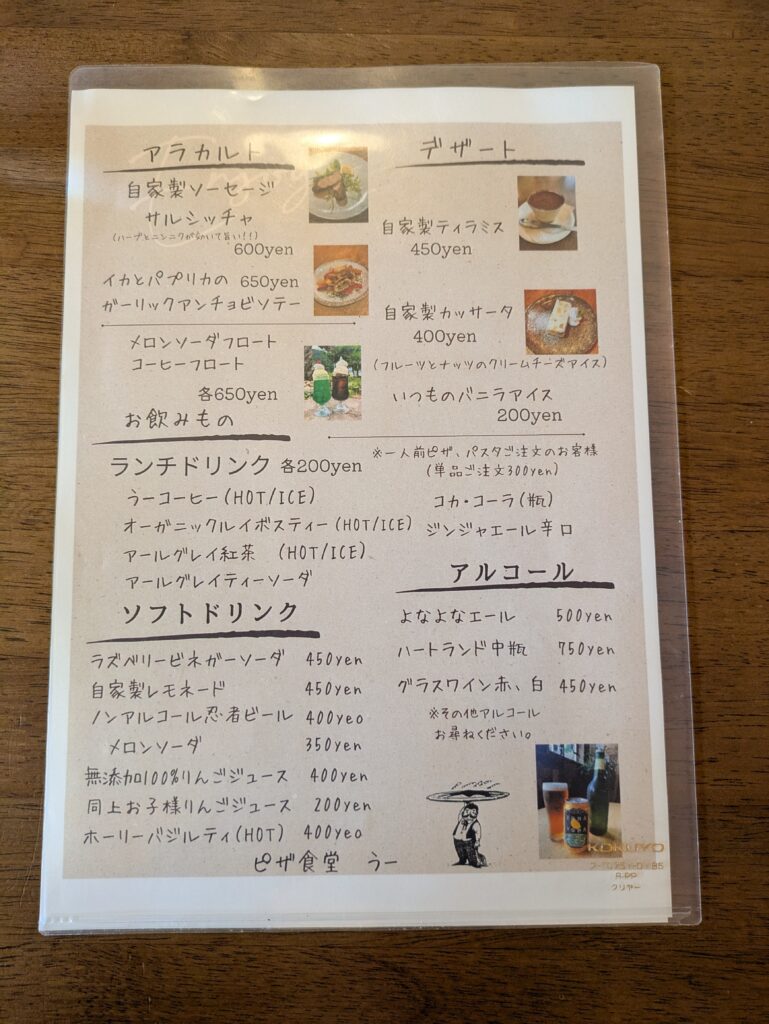 アラカルト
自家製ソーセージ
サルシッチャ
(ハーブとニンニクが効いて旨い!!)
600yen
イカとパプリカの 650yen
ガーリックアンチョビソテー
メロンソーダフロート
コーヒーフロート
各650yen
デザート
自家製ティラミス
450yen
自家製カッサータ
400yen
(フルーツとナッツのクリームチーズアイス)
いつものバニラアイス
200yen
お飲みもの
ランチドリンク 各200yen
※一人前ピザ、パスタご注文のお客様
(単品ご注文300yen)
うーコーヒー(HOT/ICE)
オーガニックルイボスティー(HOT/ICE)
アールグレイ紅茶 (HOT/ICE)
アールグレイティーソーダ
コカ・コーラ(瓶)
ジンジャエール辛口
ソフトドリンク
ラズベリービネガーソーダ 450yen
自家製レモネード 450yen
ノンアルコール忍者ビール 400yeo
メロンソーダ 350yen
無添加100%りんごジュース 400yen
同上お子様りんごジュース 200yen
ホーリーバジルティ(HOT) 400yeo
アルコール
よなよなエール 500yen
ハートランド中瓶 750yen
グラスワイン赤、白 450yen
※その他アルコール
お尋ねください。
ピザ食堂 うー
KOKUYO
クリヤー